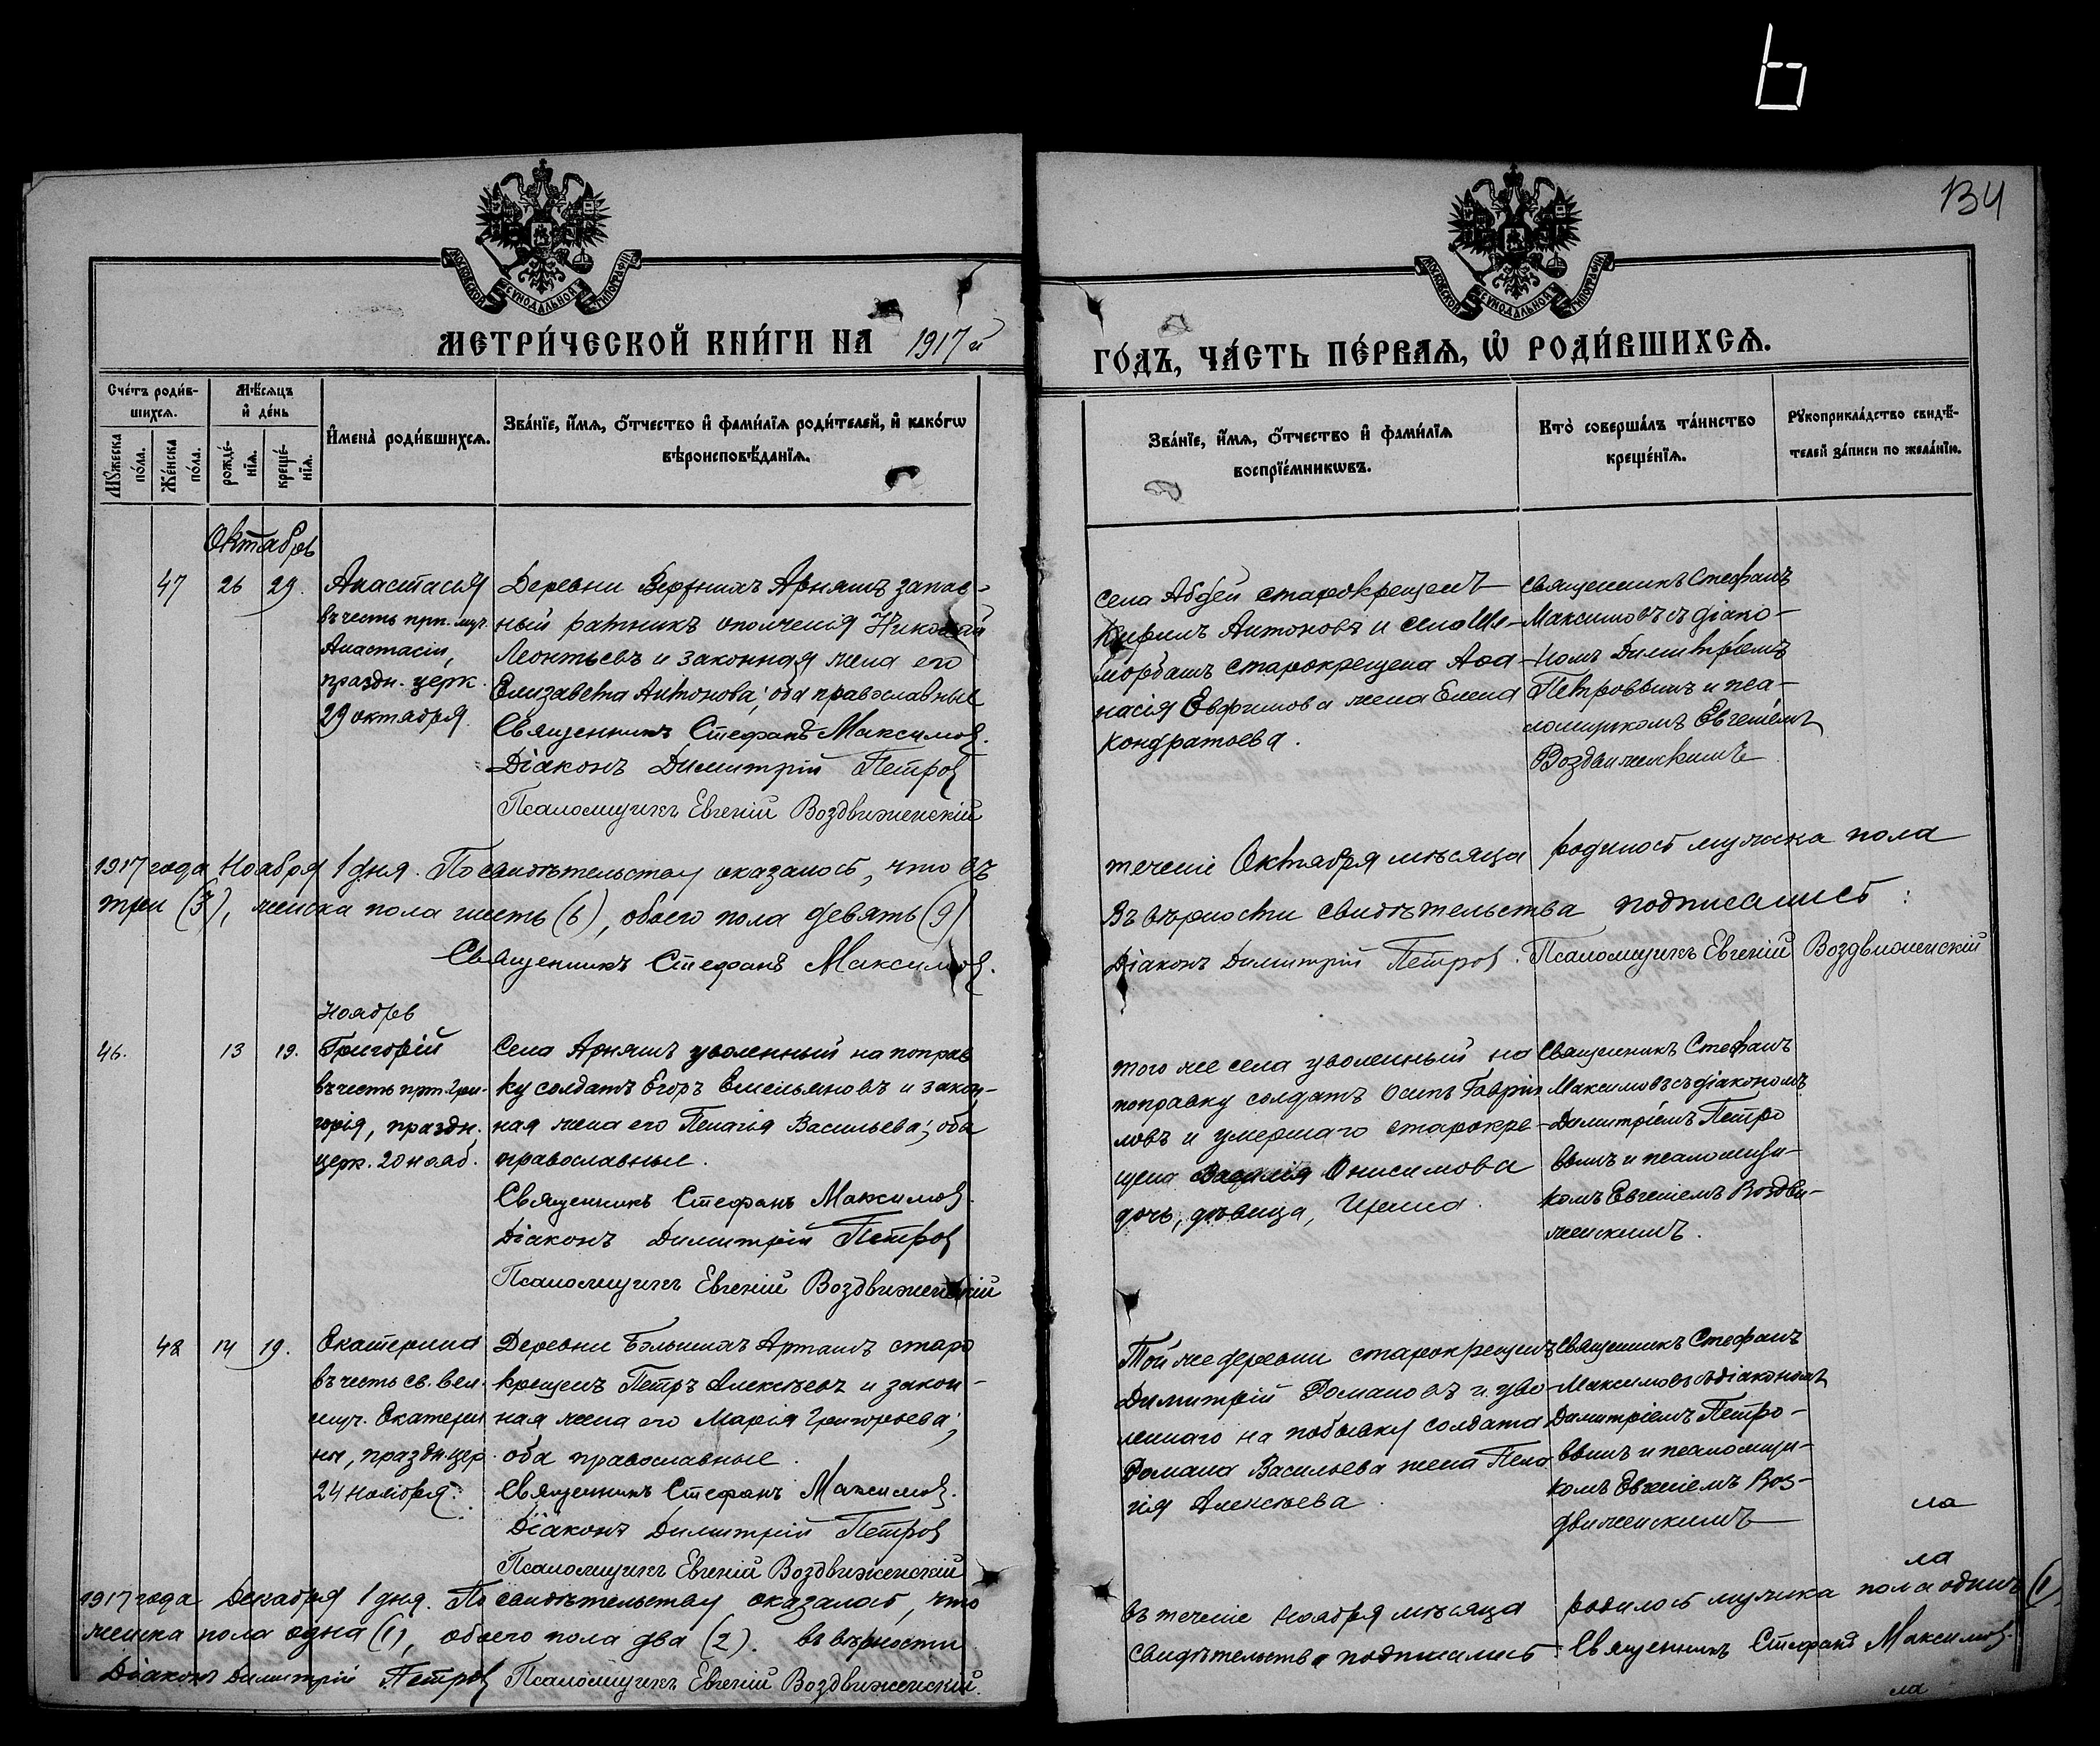 134
МОСКОВСКОЙ СѴНОДАЛЬНОЙ ТИПОГРАФІИ
МОСКОВСКОЙ СѴНОДАЛЬНОЙ ТИПОГРАФІИ
МЕТРИ́ЧЕСКОЙ КНИ́ГИ НА 1917 й
ГО́ДЪ, ЧА́СТЬ ПЕ́РВАѦ, Ѡ҆ РОДИ́ВШИХСѦ.
Сче́тъ роди́в-
шихсѧ.
Мѣ́сѧцъ
и҆ де́нь
Мꙋ́жеска по́ла.
Же́нска по́ла.
рожде́-
нїѧ.
креще́-
нїѧ.
И҆мена̀ роди́вшихсѧ.
Зва́нїе, и҆́мѧ, ѻ҆́тчество и҆ фами́лїѧ роди́телей, и҆ како́гѡ
вѣроисповѣ́данїѧ.
Зва́нїе, и҆́мѧ, ѻ҆́тчество и҆ фами́лїѧ
воспрїе́мникѡвъ.
Кто̀ соверша́лъ та́инство
креще́нїѧ.
Рꙋкоприкла́дство свидѣ́-
телей за́писи по жела́нїю.
Октябрь
47 26 29.
Анастасія
въ честь прп. муч.
Анастасіи,
праздн. церк.
29 октября.
Деревни Верхнихъ Арняшъ запас-
ный ратникъ ополченія Николай
Леонтьевъ и законная жена его
Елизавета Антонова; оба православные
Священникъ Стефанъ Максимов.
Діаконъ Димитрій Петров
Псаломщикъ Евгеній Воздвиженскій
села Абди старокрещенъ
Кирилъ Антоновъ и села Ше-
морбашъ старокрещена Аѳа-
насія Евфимова жена Елена
Кондратьева.
Священникъ Стефанъ
Максимовъ съ діако-
номъ Димитріемъ
Петровымъ и пса-
ломщикомъ Евгеніемъ
Воздвиженскимъ
1917 года Ноября 1 дня. По свидѣтельству оказалось, что въ
теченіе Октября мѣсяца родилось мужска пола
три (3), женска пола шесть (6), обоего пола девять (9)
Въ вѣрности свидѣтельства подписались:
Священникъ Стефанъ Максимов.
Діаконъ Димитрій Петров. Псаломщикъ Евгеній Воздвиженскій
Ноябрь
46. 13 19.
Григорій
въ честь прп. Гри-
горія, праздн.
церк. 20 нояб.
Села Арняшъ уволенный на поправ
ку солдатъ Егоръ Емельяновъ и закон-
ная жена его Пелагія Васильева; оба
православные.
Священникъ Стефанъ Максимов.
Діаконъ Димитрій Петров
Псаломщикъ Евгеній Воздвиженскій
того же села уволенный на
поправку солдатъ Осипъ Гаврил
ловъ и умершаго старокре-
щена Василія Онисимова
дочь, дѣвица, Ирина.
Священникъ Стефанъ
Максимовъ съ діакономъ
Димитріемъ Петро
вымъ и псаломщи-
комъ Евгеніемъ Воздви-
женскимъ.
48 14 19.
Екатерина
въ честь св. вел.
муч. Екатери
ны, праздн. цер.
24 ноября.
Деревни Большихъ Арташъ старо
крещенъ Петръ Алексѣевъ и закон-
ная жена его Марія Григорьева;
оба православные.
Священникъ Стефанъ Максимов.
Діаконъ Димитрій Петров
Псаломщикъ Евгеній Воздвиженскій
Той же деревни старокрещенъ
Димитрій Романовъ и уво-
леннаго на побывку солдата
Романа Васильева жена Пела
гія Алексѣева.
Священникъ Стефанъ
Максимовъ съ діакономъ
Димитріемъ Петро-
вымъ и псаломщи-
комъ Евгеніемъ Воз-
движенскимъ
ла
ла
1917 года Декабря 1 дня. По свидѣтельству оказалось, что
въ теченіе Ноября мѣсяца родилось мужска пола одинъ (1)
женска пола одна (1), обоего пола два (2). въ вѣрности
свидѣтельства подписались Священникъ Стефанъ Максимов.
Діаконъ Димитрій Петров Псаломщикъ Евгеній Воздвиженскій.
ла